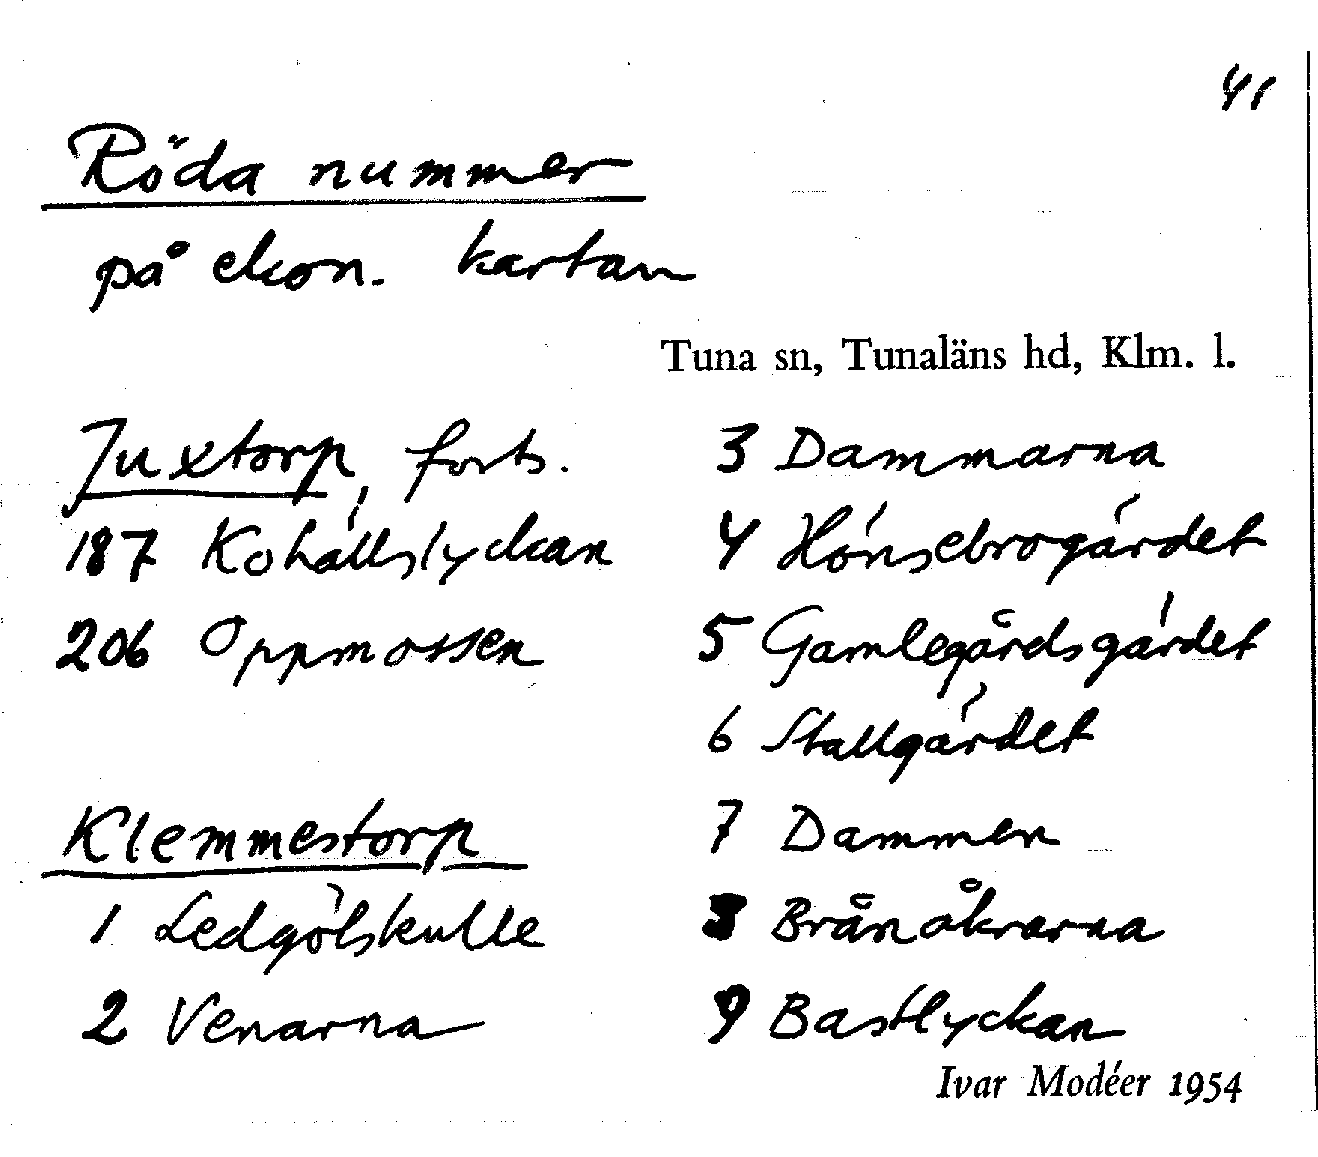 41
Röda nummer
på ekon. kartan
Tuna sn, Tunaläns hd, Klm. l.
Juxtorp, forts.
187 Kohällslyckan
206 Oppmossen
Klemmestorp
1 Ledgölskulle
2 Venarna
3 Dammarna
4 Hönsebrogärdet
5 Gamlegårdsgärdet
6 Stallgärdet
7 Dammen
8 Brånåkrarna
9 Bastlyckan
Ivar Modéer 1954